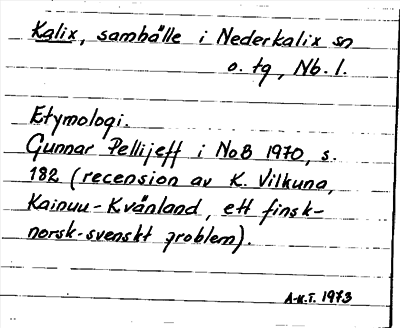 Kalix, samhälle i Nederkalix sn
o. tg, Nb. l.
Etymologi.
Gunnar Pellijeff i NoB 1970, s.
182 (recension av K. Vilkuna,
Kainuu - Kvänland, ett finsk-
norsk-svenskt problem).
A-K.T. 1973